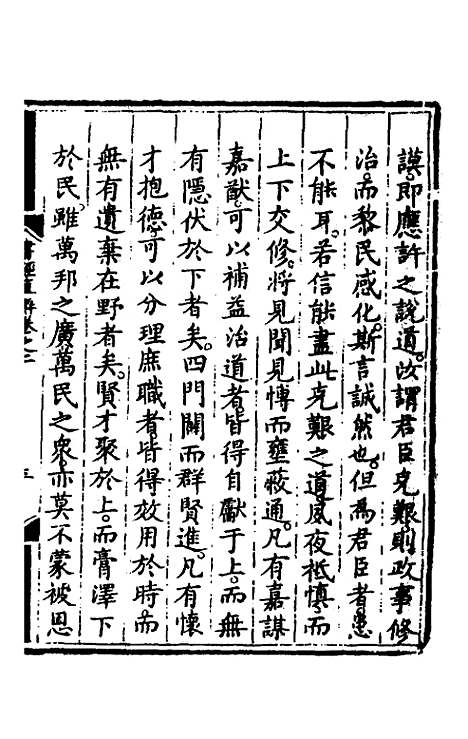 謨。即應許之說道。汝謂君臣克艱則政事修
治。而黎民感化。斯言誠然也。但為君臣者患
不能耳。若信能盡此克艱之道。夙夜祗慎。而
上下交修。將見聞見博而壅蔽通。凡有嘉謀
嘉猷。可以補益治道者。皆得自獻于上。而無
有隱伏於下者矣。四門闢而群賢進。凡有懷
才抱德可以分理庶職者。皆得效用於時。而
無有遺棄在野者矣。賢才聚於上。而膏澤下
於民。雖萬邦之廣。萬民之衆。亦莫不蒙被恩
書經直解卷之二